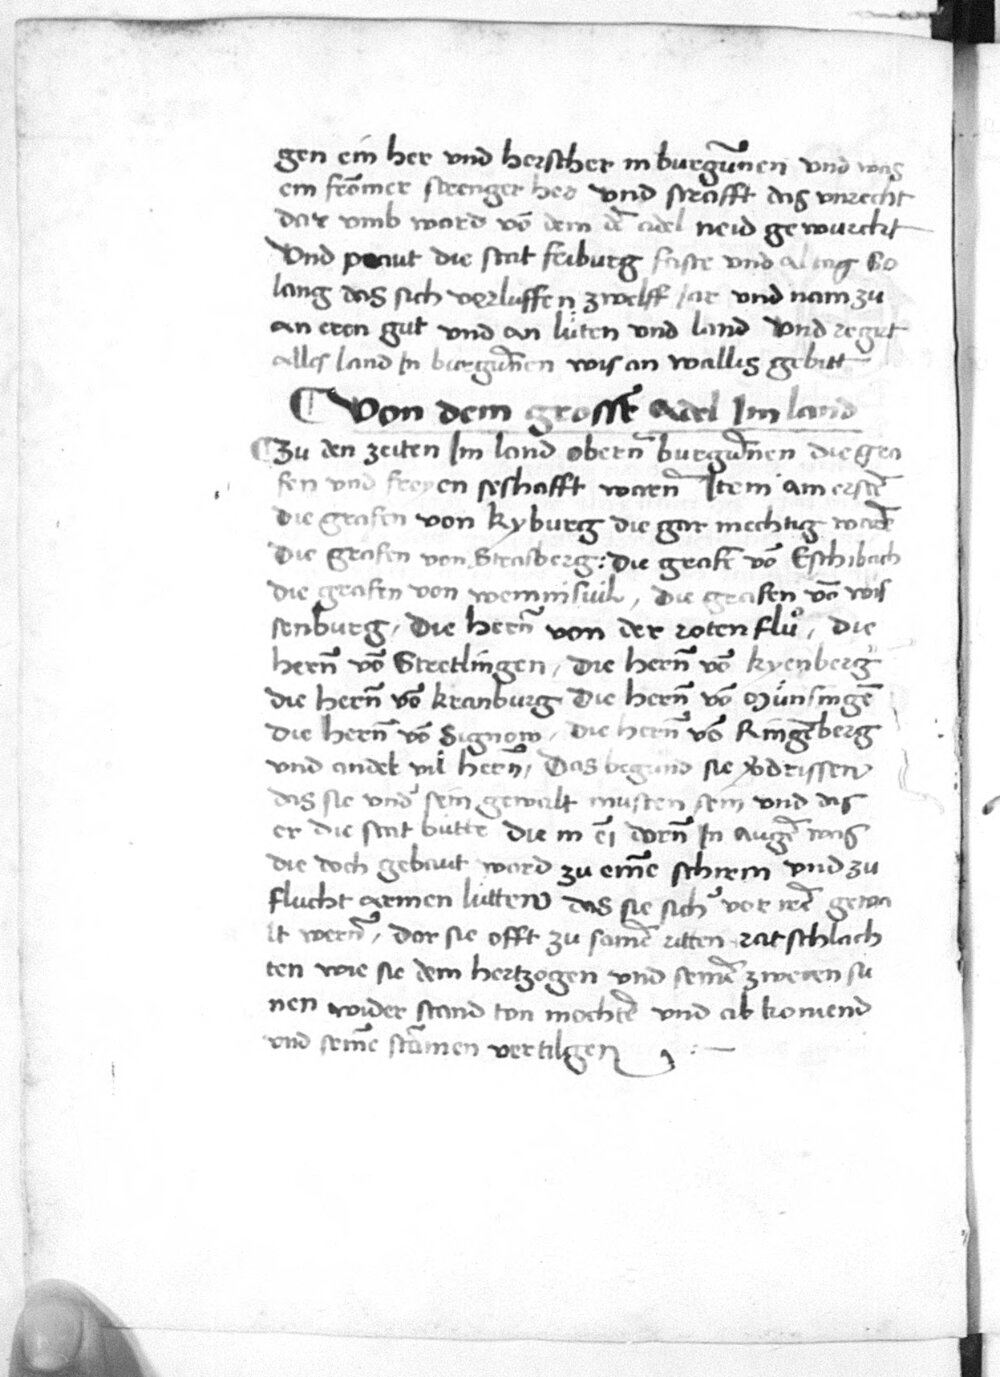 gen ein her vnd herscher in burgūnen vnd was
ein frōmer strenger her vnd strafft das vnrecht
dar vmb ward vō dem dē adel neid gewurckt
Vnd paut die stat friburg feste vnd so
lang das sich verluffen zwelff Jar vnd nam zu
an eren gut vnd an lüten vnd land Vnd regirt
alles land In burgūnen wis an wallis gebirt
Von dem grossē Adel Im land
Zu den zeiten Im land obern burgūnen die gra
fen vnd freyen seshafft warn Item am erstē
die grafen von kyburg die gar mechtig warē
Die grafen von Strasberg: Die grafē vō Eschibach
die grafen von wemniswil, Die grafen vō wis
senburg, Die hern von der roten flů, Die
hern vō Stretlingen, Die hern vō kyenberg
die hern vō kranburg Die hern vō Münsingē
Die hern vō Signow, Die hern vō Ringēberg
vnd ander vil hern, Das begund sie vdrissen
das sie vnd sein gewalt musten sein vnd das
er die stat butte die in ei dorn In augē was
die doch gebaut ward zu einē schirm vnd zu
flucht armen lütten das sie sich vor irē gewa
lt wern, Dar sie offt zu samē ritten ratschlach
ten wie sie dem hertzogen vnd seinē zweren sü
nen wider stand ton mochtē vnd ab komend
vnd seinē stāmen vertilgen